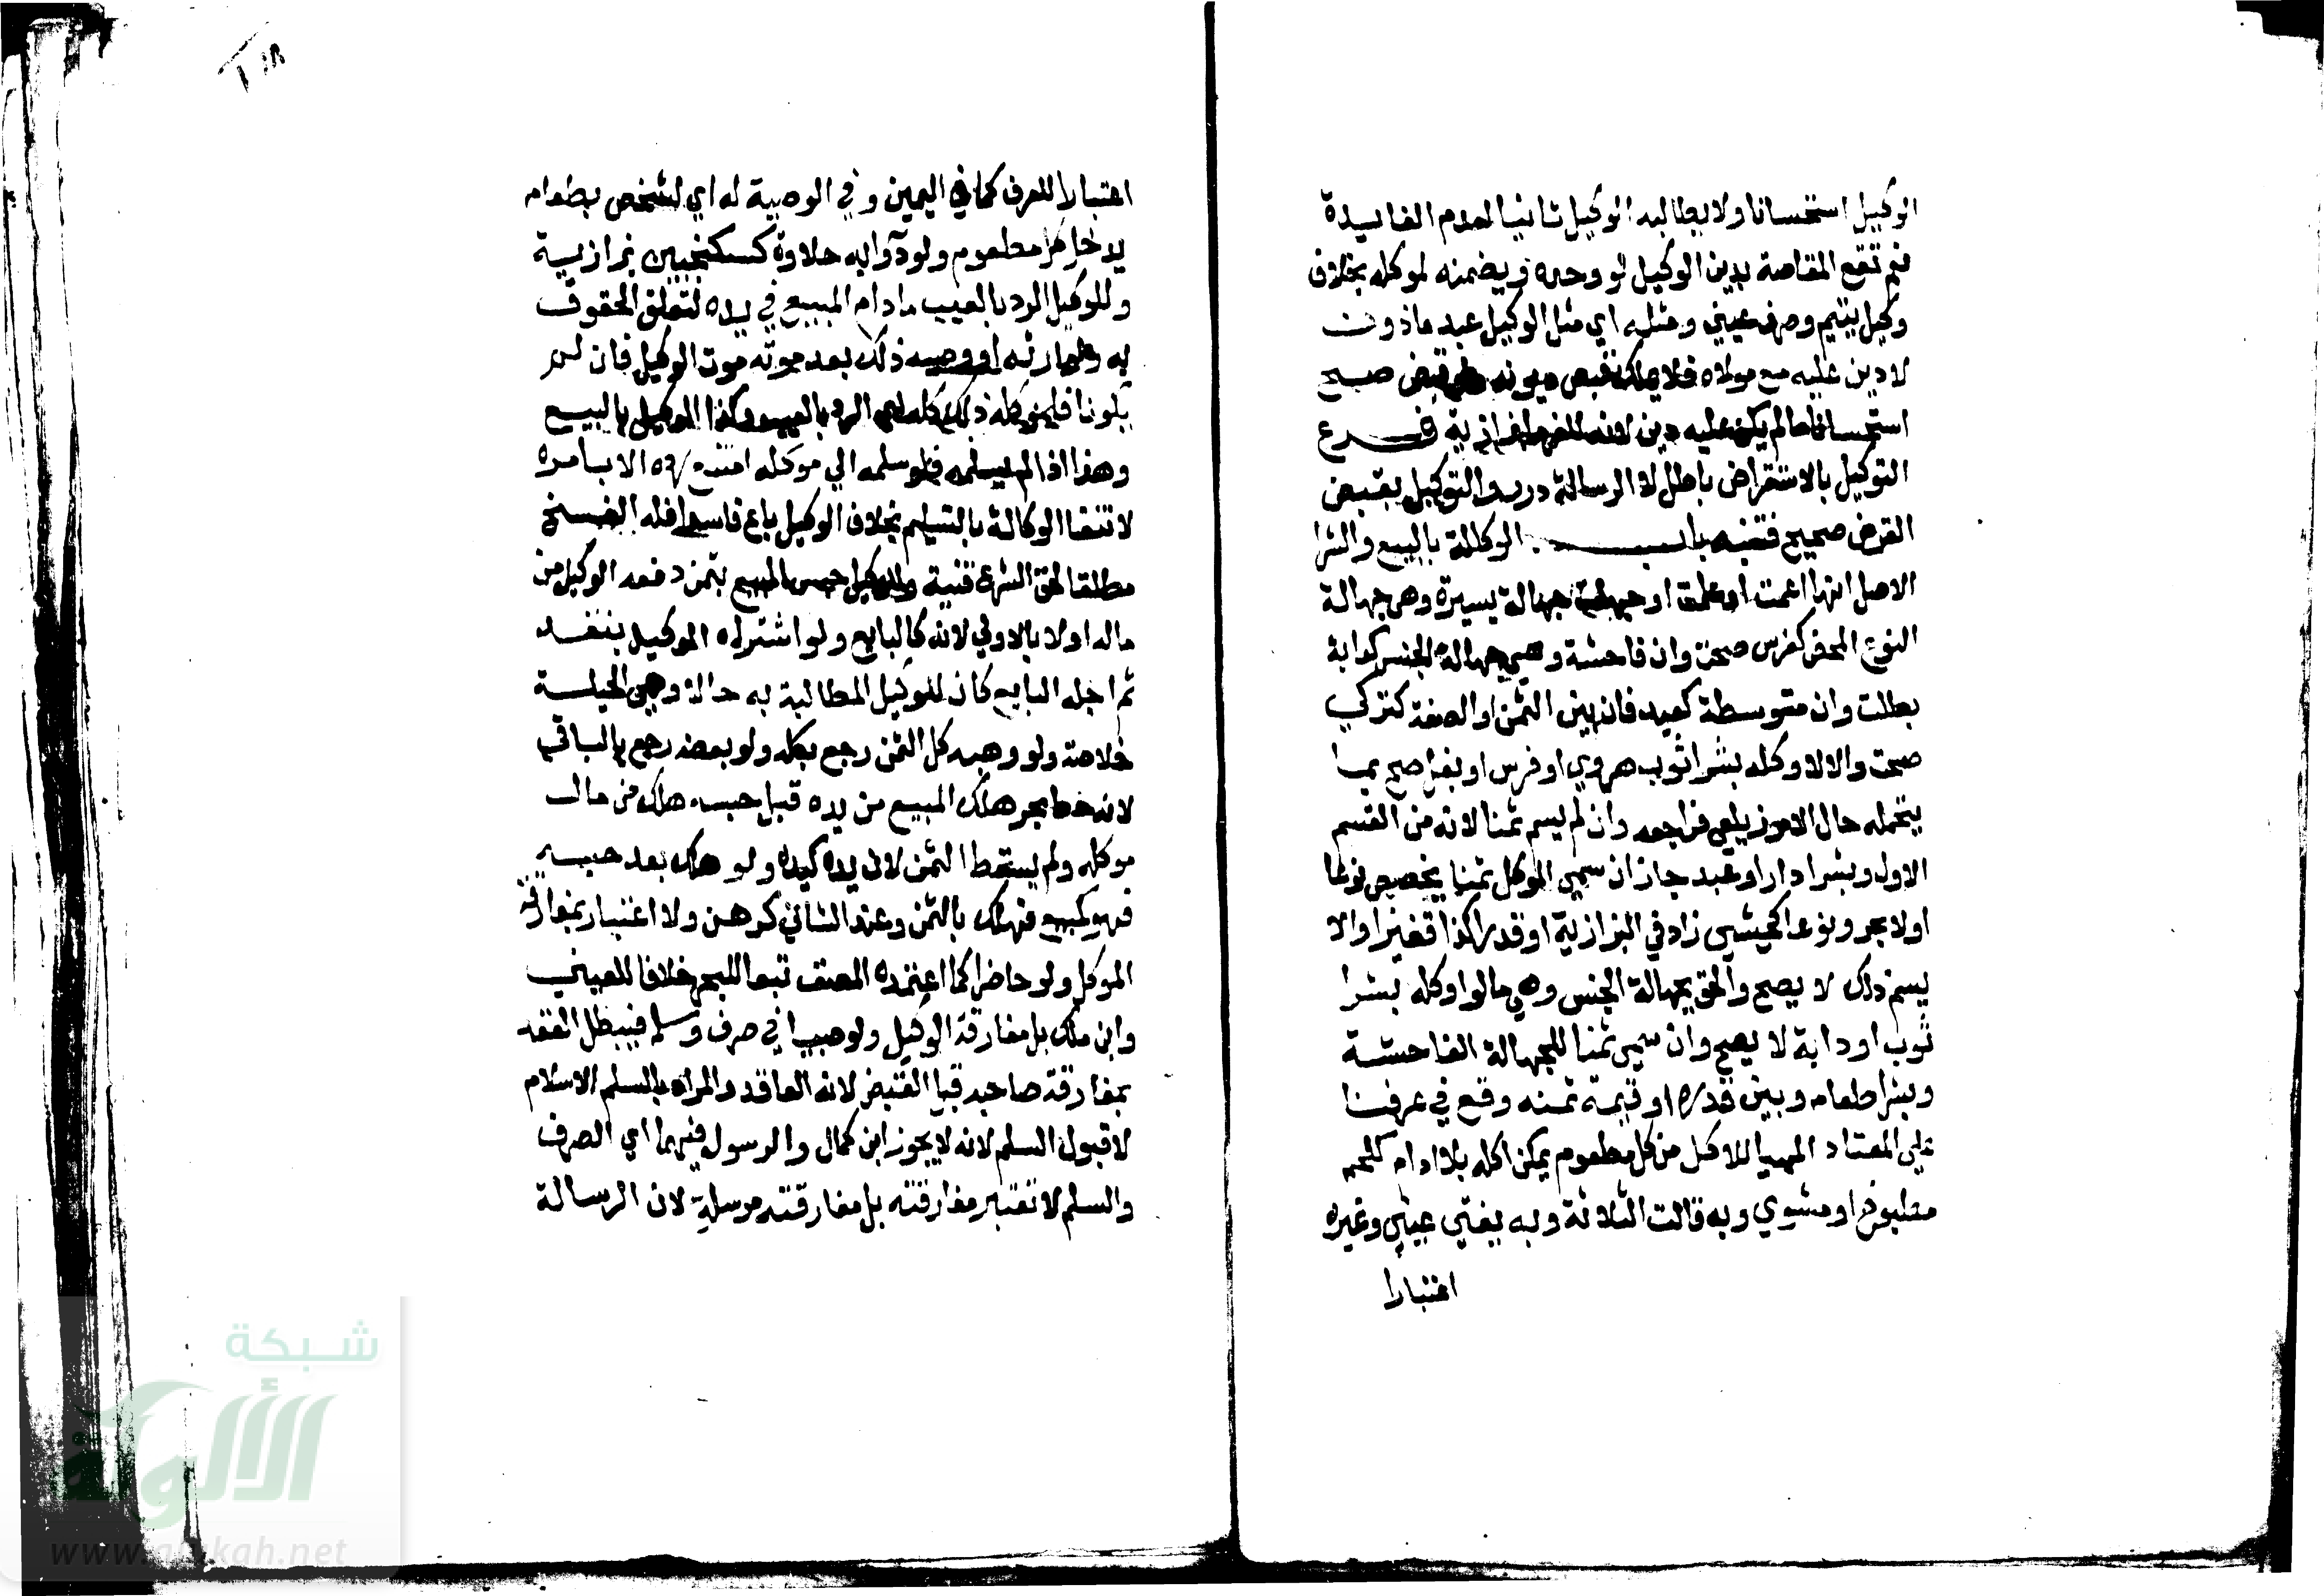 الوكيل استحسانا ولا يطالبه الوكيل ثانيا لعدم الفايدة
نعم تقع المقاصة بدين الوكيل لو وحده ويضمنه لموكله بخلاف
وكيل يتيم وصرف عيني ومثله اي مثل الوكيل عبد ماذون
لا دين عليه مع مولاه فلا يملك قبض ديونه ولو قبض صح
استحسانا ما لم يكن عليه دين لانه للغرما بزازية فرع
التوكيل بالاستقراض باطل لا الرسالة درر والتوكيل بقبض
القرض صحيح فتنبه باب الوكالة بالبيع والشرا
الاصل انها ان عمت او علمت او جهلت جهالة يسيرة وهي جهالة
النوع المحض كفرس صحت وان فاحشة وهي جهالة الجنس كدابة
بطلت وان متوسطة كعبد فان بين الثمن او الصفة كتركي
صحت والا لا وكله بشرا ثوب هروي او فرس او بغل صح بما
يتحمله حال الامر زيلعي فراجعه وان لم يسم ثمنا لانه من القسم
الاول وبشرا دار او عبد جاز ان سمي الموكل ثمنا يخصص نوعا
اولا بحر ونوعا كحبشي زاد في البزازية او قدرا كذا قفيزا والا
يسم ذلك لا يصح والحق بجهالة الجنس وهي ما لو اوكله بشرا
ثوب او دابة لا يصح وان سمي ثمنا للجهالة الفاحشة
وبشرا طعام وبين قدره او قيمة ثمنه وقع في عرفنا
علي المعتاد المهيا للاكل من كل مطعوم يمكن اكله بلا ادام كلحم
مطبوخ او مشوي وبه قالت الثلاثة وبه يفتي عيني وغيره
اعتبارا
اعتبارا للعرف كما في اليمين وفي الوصية له اي لشخص بطعام
يدخل كل مطعوم ولو دوا به حلاوة كسكنجبين بزازية
وللوكيل الرد بالعيب ما دام المبيع في يده لتعلق الحقوق
به ولوارثه او وصيه ذلك بعد موته موت الوكيل فان لم
يكونا فلموكله ذلك الرد بالعيب وكذا الوكيل بالبيع
وهذا اذا لم يسلمه فلو سلمه الي موكله امتنع رده الا بامره
لانتفا الوكالة بالتسليم بخلاف الوكيل باع فاسدا فله الفسخ
مطلقا لحق الشرع قنية وللوكيل حبس المبيع بثمن دفعه الوكيل من
ماله اولا بالاولي لانه كالبايع ولو اشتراه الوكيل بنقد
ثم اجله البايع كان للوكيل المطالبة به حالا وهي الحيلة
خلاصة ولو وهبه كل الثمن رجع بكله ولو بعضه رجع بالباقي
لانه حط بحر هلك المبيع من يده قبل حبسه هلك من مال
موكله ولم يسقط الثمن لان يده كيده ولو هلك بعد حبسه
فهو كمبيع فهلك بالثمن وعند الثاني كرهن ولا اعتبار بمفارقة
الموكل ولو حاضرا كما اعتمده المصنف تبعا للبحر خلافا للعيني
وابن ملك بل مفارقة الوكيل ولو صبيا في صرف وسلم فيبطل العقد
بمفارقة صاحبه قبل القبض لانه العاقد والمراد بالسلم الاسلام
لا قبول السلم لانه لا يجوز ابن كمال والرسول فيهما اي الصرف
والسلم لا تعتبر مفارقته بل مفارقته مرسله لان الرسالة
شبكة
الألوكة
www.alukah.net